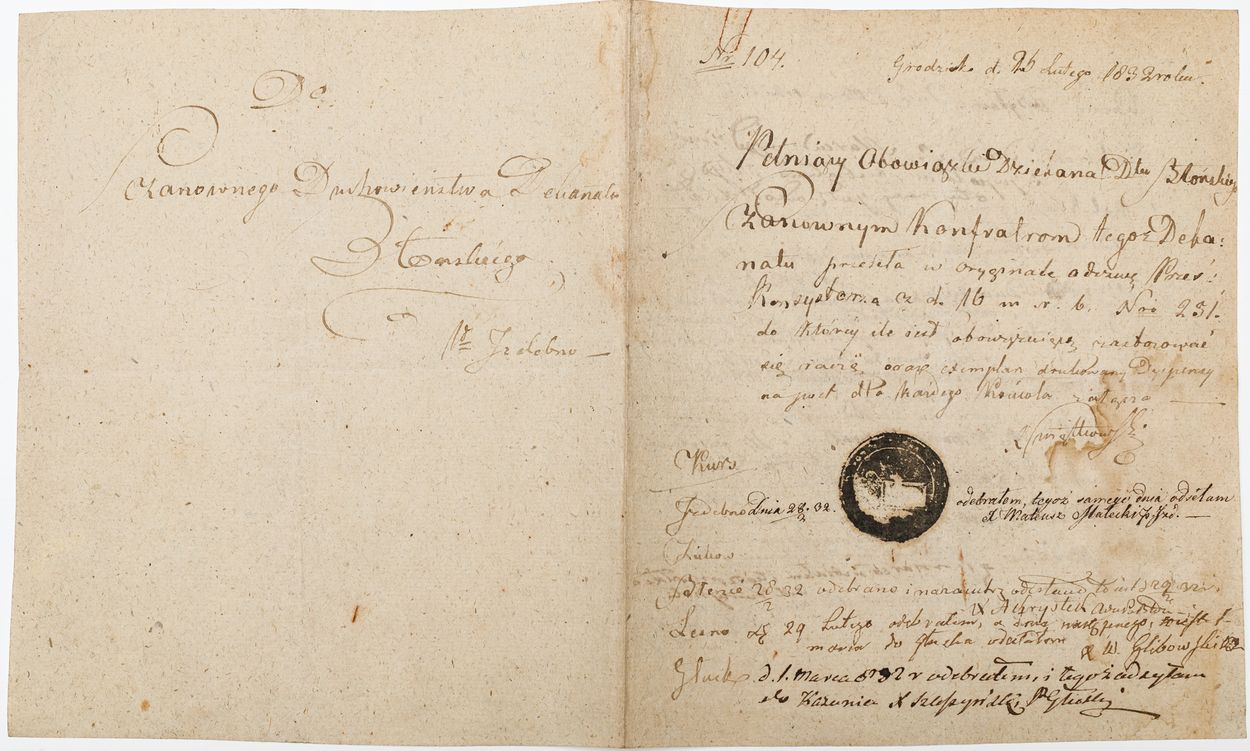 Do
Szanownego Duchowieństwa Dekanatu
Błońskiego
w Izdebno —
Nr. 104.
Grodzisk d. 26 Lutego 1832 roku.
Pełniący Obowiązki Dziekana Dktu Błońskiego
Szanownym Konfratrom tegoż Deka:
natu przeseła w oryginale odezwę Prześ:
Konsystorza z d. 16 m. r. b. Nro 231.
do której ile jest obowiązującą zastosować
się raczą, oraz exemplarz drukowany Dyspensy
na post dla każdego Kościoła załącza —
Kurs
Izdebno Dnia 28/2 32. odebrałem, tegoż samego dnia odsełam
X Mateusz Małecki
Żuków
28/2 32 odebrano i nazajutrz odesłano to jest 29 32
Leszno d. 29 Lutego odebrałem, a dnia następnego,
marca do Płocha odesłałem X W. Glibowski
d. 1. Marca 1832 r odebrałem, i tegoż odsyłam
do Kazunia X